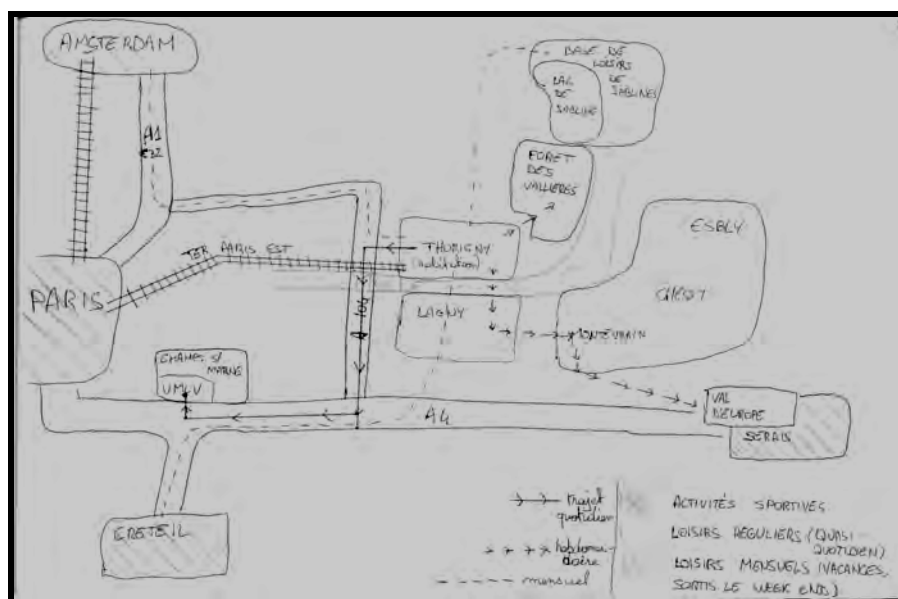 AMSTERDAM
BASE DE
LOISIRS
DE
SABLINES
LAC
DE
SABLINE
A1
FORET
DES
VALLIERES
ESBLY
THORIGNY
(habitation)
TER PARIS EST
PARIS
A 104
LAGNY
CHESSY
MONTEVRAIN
CHAMPS S/
MARNE
UMLV
A4
VAL
D'EUROPE
SERRIS
CRETEIL
trajet
quotidien
hebdomadaire
mensuel
ACTIVITÉS SPORTIVES
LOISIRS REGULIERS (QUASI-
QUOTIDIEN)
LOISIRS MENSUELS (VACANCES,
SORTIS LE WEEK END)